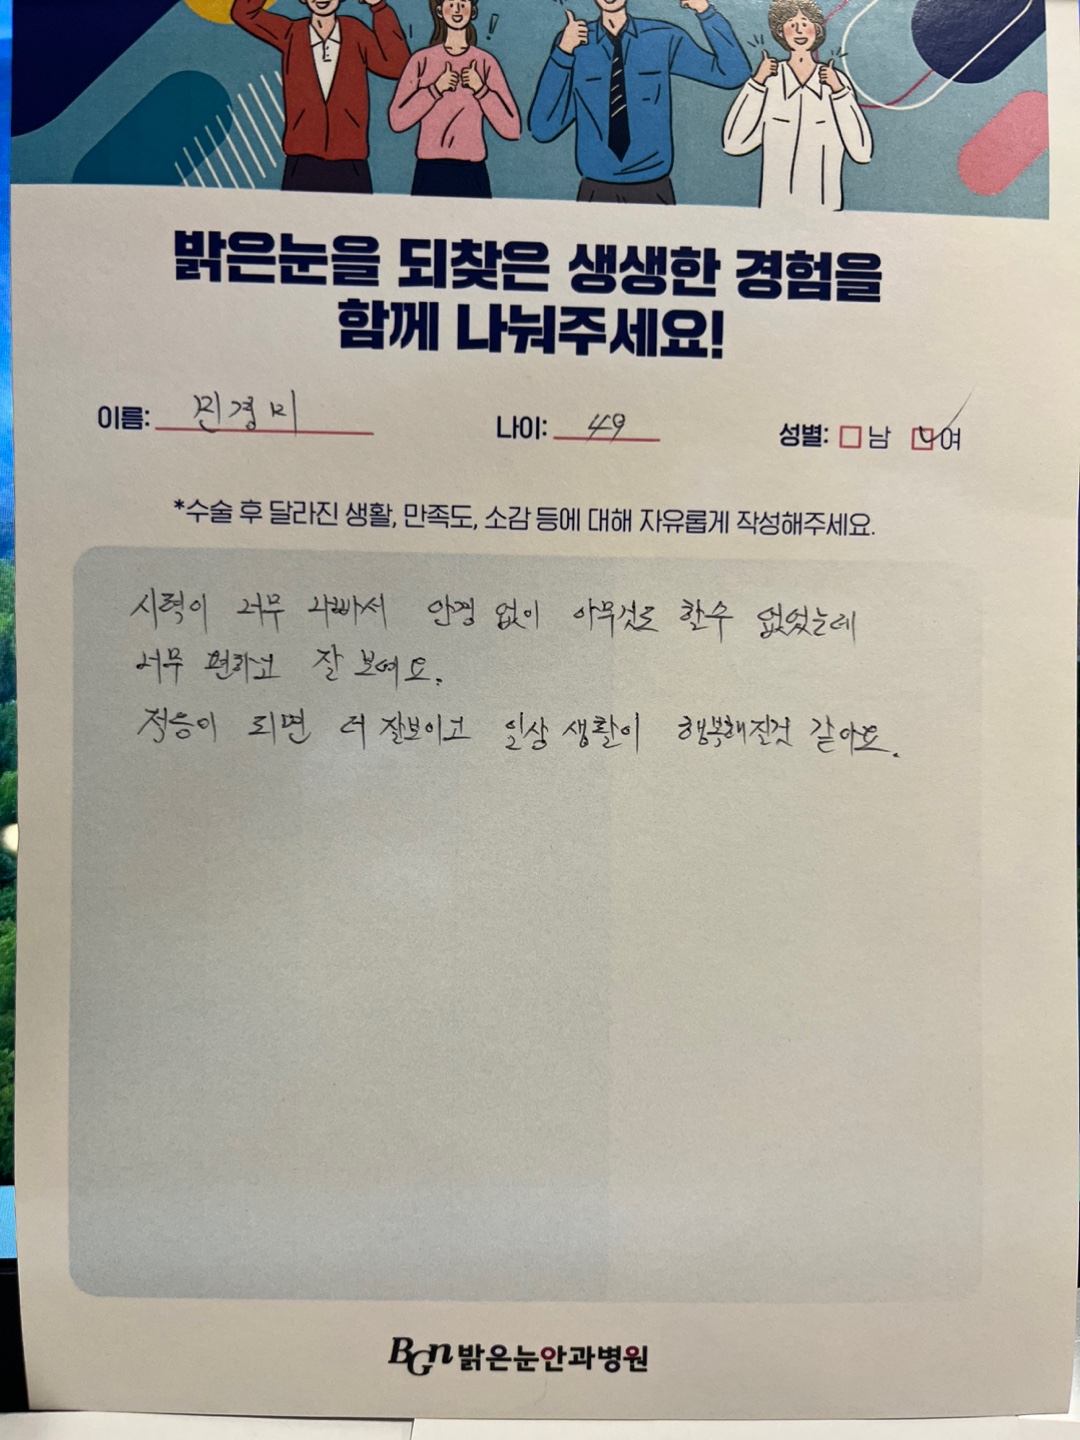 밝은눈을 되찾은 생생한 경험을
함께 나눠주세요!
이름: 민경미 나이: 49 성별: 남 여
*수술 후 달라진 생활, 만족도, 소감 등에 대해 자유롭게 작성해주세요.
시력이 너무 나빠서 안경 없이 아무것도 할수 없었는데
너무 편하고 잘 보여요.
적응이 되면 더 잘보이고 일상 생활이 행복해질것 같아요.
BGn 밝은눈안과병원